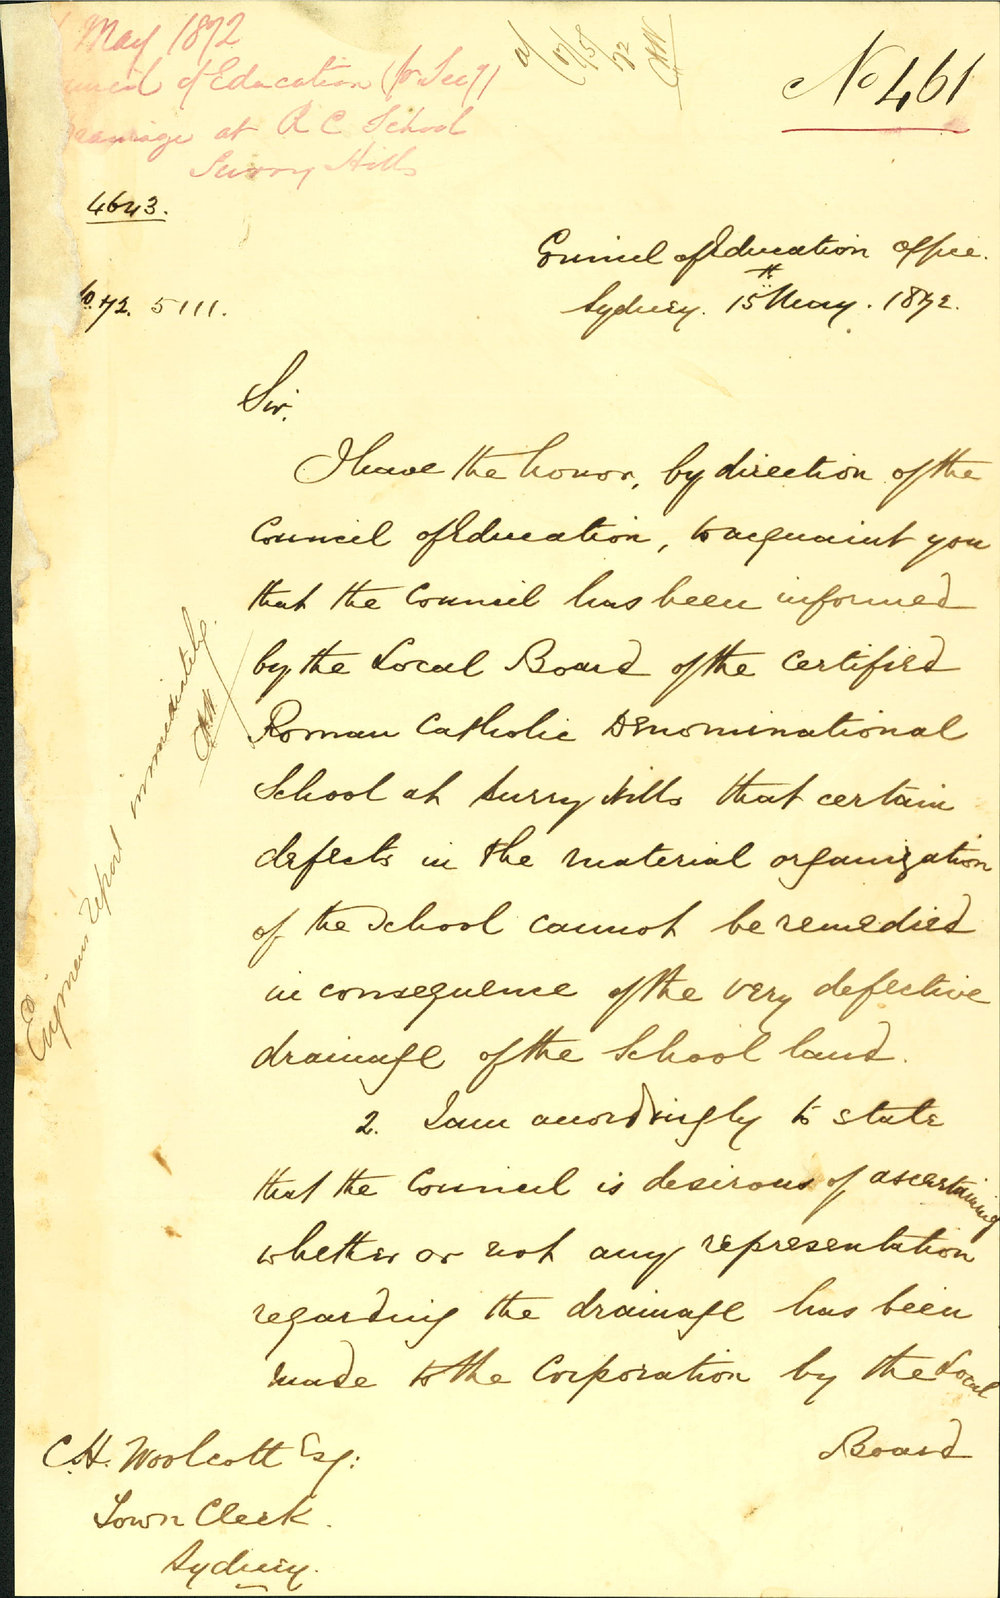 May 1872
of Education (for Secy)
at R C School
Surry Hills
No 461
4643.
72. 5111.
Council of Education Office.
Sydney. 15th May. 1872.
Sir,
I have the honor, by direction of the
Council of Education, to acquaint you
that the Council has been informed
by the Local Board of the Certified
Roman Catholic Denominational
School at Surry Hills that certain
defects in the material organization
of the School cannot be remedied
in consequence of the very defective
drainage of the School land.
2. I am accordingly to state
that the Council is desirous of ascertaining
whether or not any representation
regarding the drainage has been
made to the Corporation by the Local
Board
C.H. Woolcott Esq:
Town Clerk.
Sydney.
Engineers report immediately.
CHW